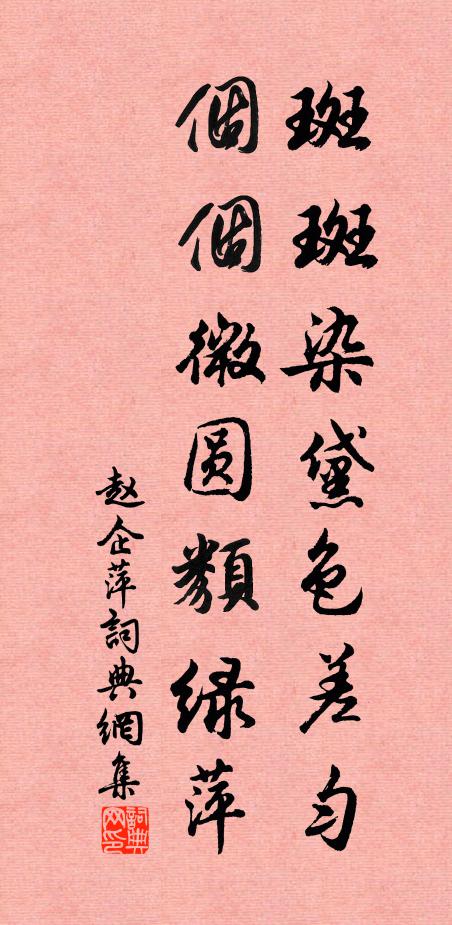 斑斑染黛色差勻
個個微圓類绿萍
赵企萍詞典網集
詞典网印